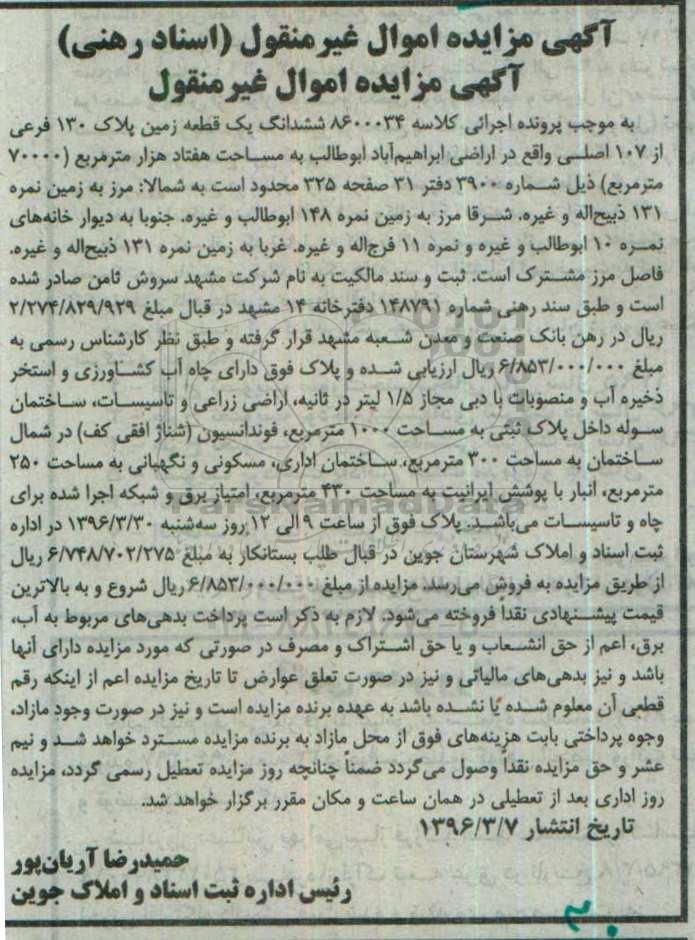 آگهی مزایده اموال غیرمنقول (اسناد رهنی)
آگهی مزایده اموال غیرمنقول
به موجب پرونده اجرائی کلاسه ۸۶۰۰۰۳۴ ششدانگ یک قطعه زمین پلاک ۱۳۰ فرعی
از ۱۰۷ اصلی واقع در اراضی ابراهیم‌آباد ابوطالب به مساحت هفتاد هزار مترمربع (۷۰۰۰۰
مترمربع) ذیل شماره ۳۹۰۰ دفتر ۳۱ صفحه ۳۲۵ محدود است به شمالا: مرز به زمین نمره
۱۳۱ ذبیح‌اله و غیره. شرقا مرز به زمین نمره ۱۴۸ ابوطالب و غیره. جنوبا به دیوار خانه‌های
نمره ۱۰ ابوطالب و غیره و نمره ۱۱ فرج‌اله و غیره. غربا به زمین نمره ۱۳۱ ذبیح‌اله و غیره.
فاصل مرز مشترک است. ثبت و سند مالکیت به نام شرکت مشهد سروش ثامن صادر شده
است و طبق سند رهنی شماره ۱۴۸۷۹۱ دفترخانه ۱۴ مشهد در قبال مبلغ ۲/۲۷۴/۸۲۹/۹۲۹
ریال در رهن بانک صنعت و معدن شعبه مشهد قرار گرفته و طبق نظر کارشناس رسمی به
مبلغ ۶/۸۵۳/۰۰۰/۰۰۰ ریال ارزیابی شده و پلاک فوق دارای چاه آب کشاورزی و استخر
ذخیره آب و منصوبات با دبی مجاز ۱/۵ لیتر در ثانیه، اراضی زراعی و تاسیسات، ساختمان
سوله داخل پلاک ثبتی به مساحت ۱۰۰۰ مترمربع، فوندانسیون (شناژ افقی کف) در شمال
ساختمان به مساحت ۳۰۰ مترمربع، ساختمان اداری، مسکونی و نگهبانی به مساحت ۲۵۰
مترمربع، انبار با پوشش ایرانیت به مساحت ۴۳۰ مترمربع، امتیاز برق و شبکه اجرا شده برای
چاه و تاسیسات می‌باشد. پلاک فوق از ساعت ۹ الی ۱۲ روز سه‌شنبه ۱۳۹۶/۳/۳۰ در اداره
ثبت اسناد و املاک شهرستان جوین در قبال طلب بستانکار به مبلغ ۶/۷۴۸/۷۰۲/۲۷۵ ریال
از طریق مزایده به فروش می‌رسد. مزایده از مبلغ ۶/۸۵۳/۰۰۰/۰۰۰ ریال شروع و به بالاترین
قیمت پیشنهادی نقدا فروخته می‌شود. لازم به ذکر است پرداخت بدهی‌های مربوط به آب،
برق، اعم از حق انشعاب و یا حق اشتراک و مصرف در صورتی که مورد مزایده دارای آنها
باشد و نیز بدهی‌های مالیاتی و نیز در صورت تعلق عوارض تا تاریخ مزایده اعم از اینکه رقم
قطعی آن معلوم شده یا نشده باشد به عهده برنده مزایده است و نیز در صورت وجود مازاد،
وجوه پرداختی بابت هزینه‌های فوق از محل مازاد به برنده مزایده مسترد خواهد شد و نیم
عشر و حق مزایده نقداً وصول می‌گردد ضمناً چنانچه روز مزایده تعطیل رسمی گردد، مزایده
روز اداری بعد از تعطیلی در همان ساعت و مکان مقرر برگزار خواهد شد.
تاریخ انتشار ۱۳۹۶/۳/۷
حمیدرضا آریان‌پور
رئیس اداره ثبت اسناد و املاک جوین